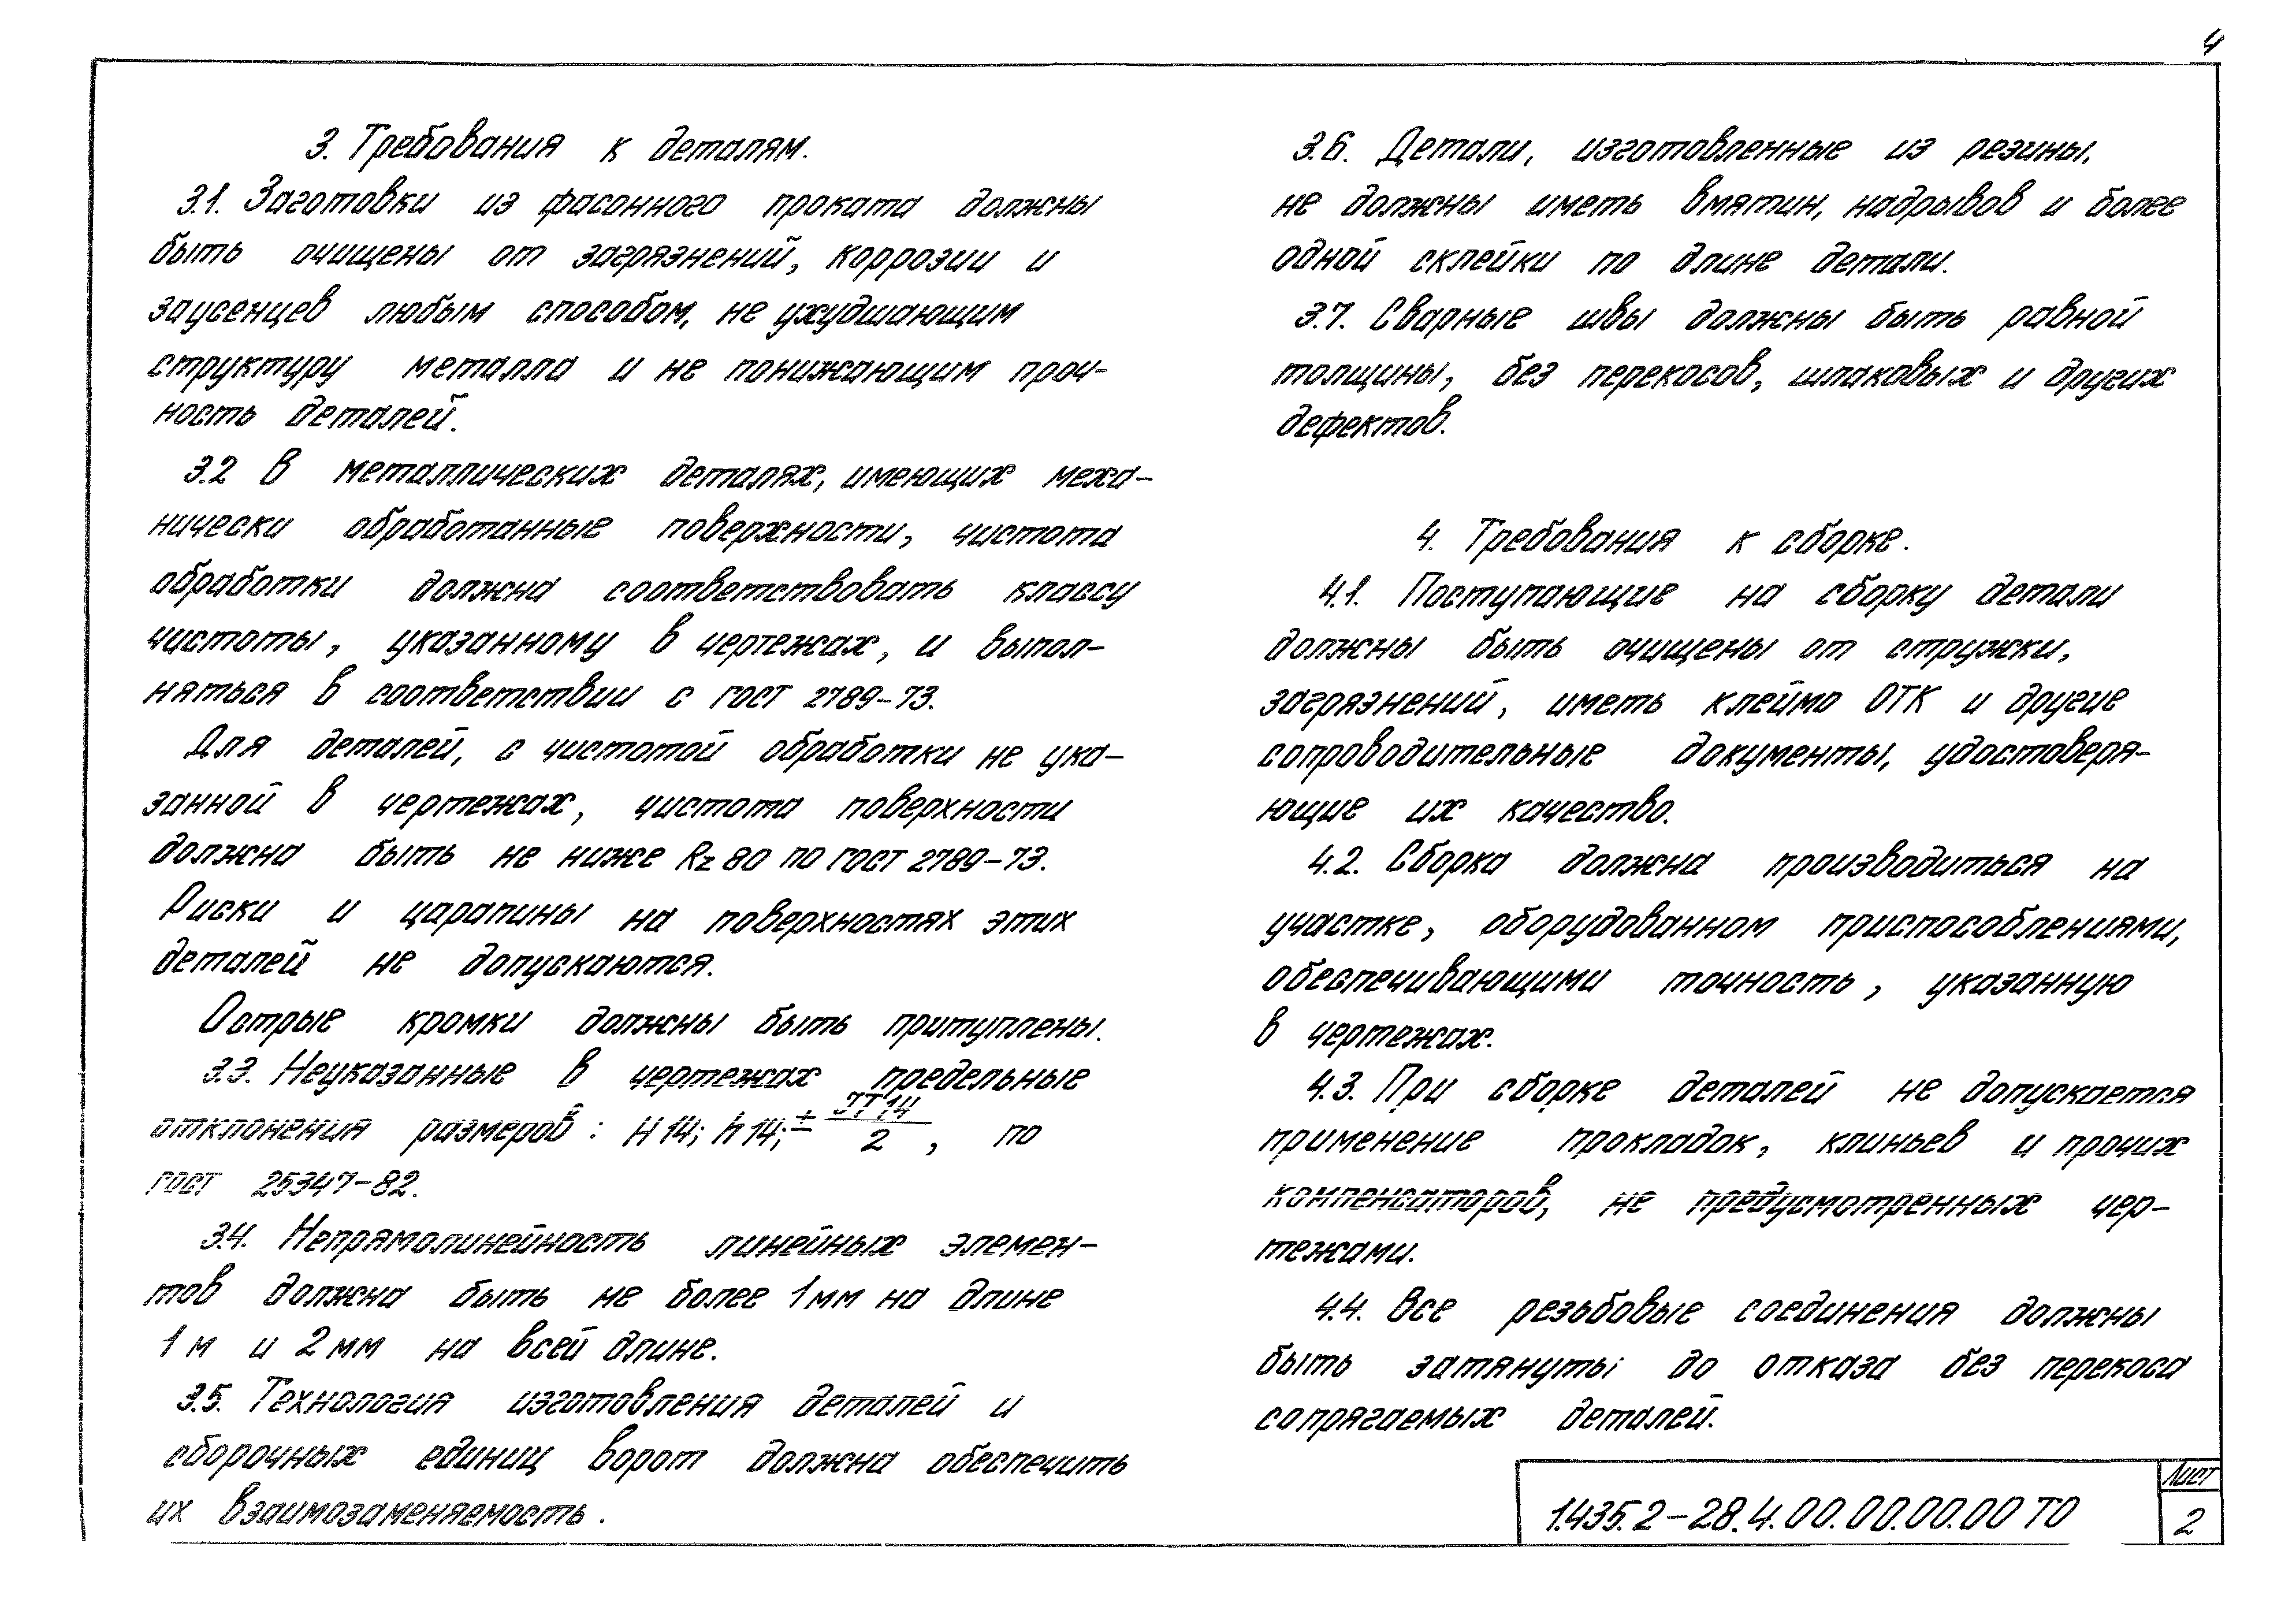 4
3. Требования к деталям.
3.1. Заготовки из фасонного проката должны
быть очищены от загрязнений, коррозии и
заусенцев любым способом, не ухудшающим
структуру металла и не понижающим проч-
ность деталей.
3.2 В металлических деталях, имеющих меха-
нически обработанные поверхности, чистота
обработки должна соответствовать классу
чистоты, указанному в чертежах, и выпол-
няться в соответствии с ГОСТ 2789-73.
Для деталей, с чистотой обработки не ука-
занной в чертежах, чистота поверхности
должна быть не ниже Rz 80 по ГОСТ 2789-73.
Риски и царапины на поверхностях этих
деталей не допускаются.
Острые кромки должны быть притуплены.
3.3. Неуказанные в чертежах предельные
отклонения размеров: H14; h14; ± JT14/2, по
ГОСТ 25347-82.
3.4. Непрямолинейность линейных элемен-
тов должна быть не более 1мм на длине
1м и 2мм на всей длине.
3.5. Технология изготовления деталей и
сборочных единиц ворот должна обеспечить
их взаимозаменяемость.
3.6. Детали, изготовленные из резины,
не должны иметь вмятин, надрывов и более
одной склейки по длине детали.
3.7. Сварные швы должны быть равной
толщины, без перекосов, шлаковых и других
дефектов.
4. Требования к сборке.
4.1. Поступающие на сборку детали
должны быть очищены от стружки,
загрязнений, иметь клеймо ОТК и другие
сопроводительные документы, удостоверя-
ющие их качество.
4.2. Сборка должна производиться на
участке, оборудованном приспособлениями,
обеспечивающими точность, указанную
в чертежах.
4.3. При сборке деталей не допускается
применение прокладок, клиньев и прочих
компенсаторов, не предусмотренных чер-
тежами.
4.4. Все резьбовые соединения должны
быть затянуты до отказа без перекоса
сопрягаемых деталей.
1.435.2-28.4.00.00.00.00 ТО
Лист
2